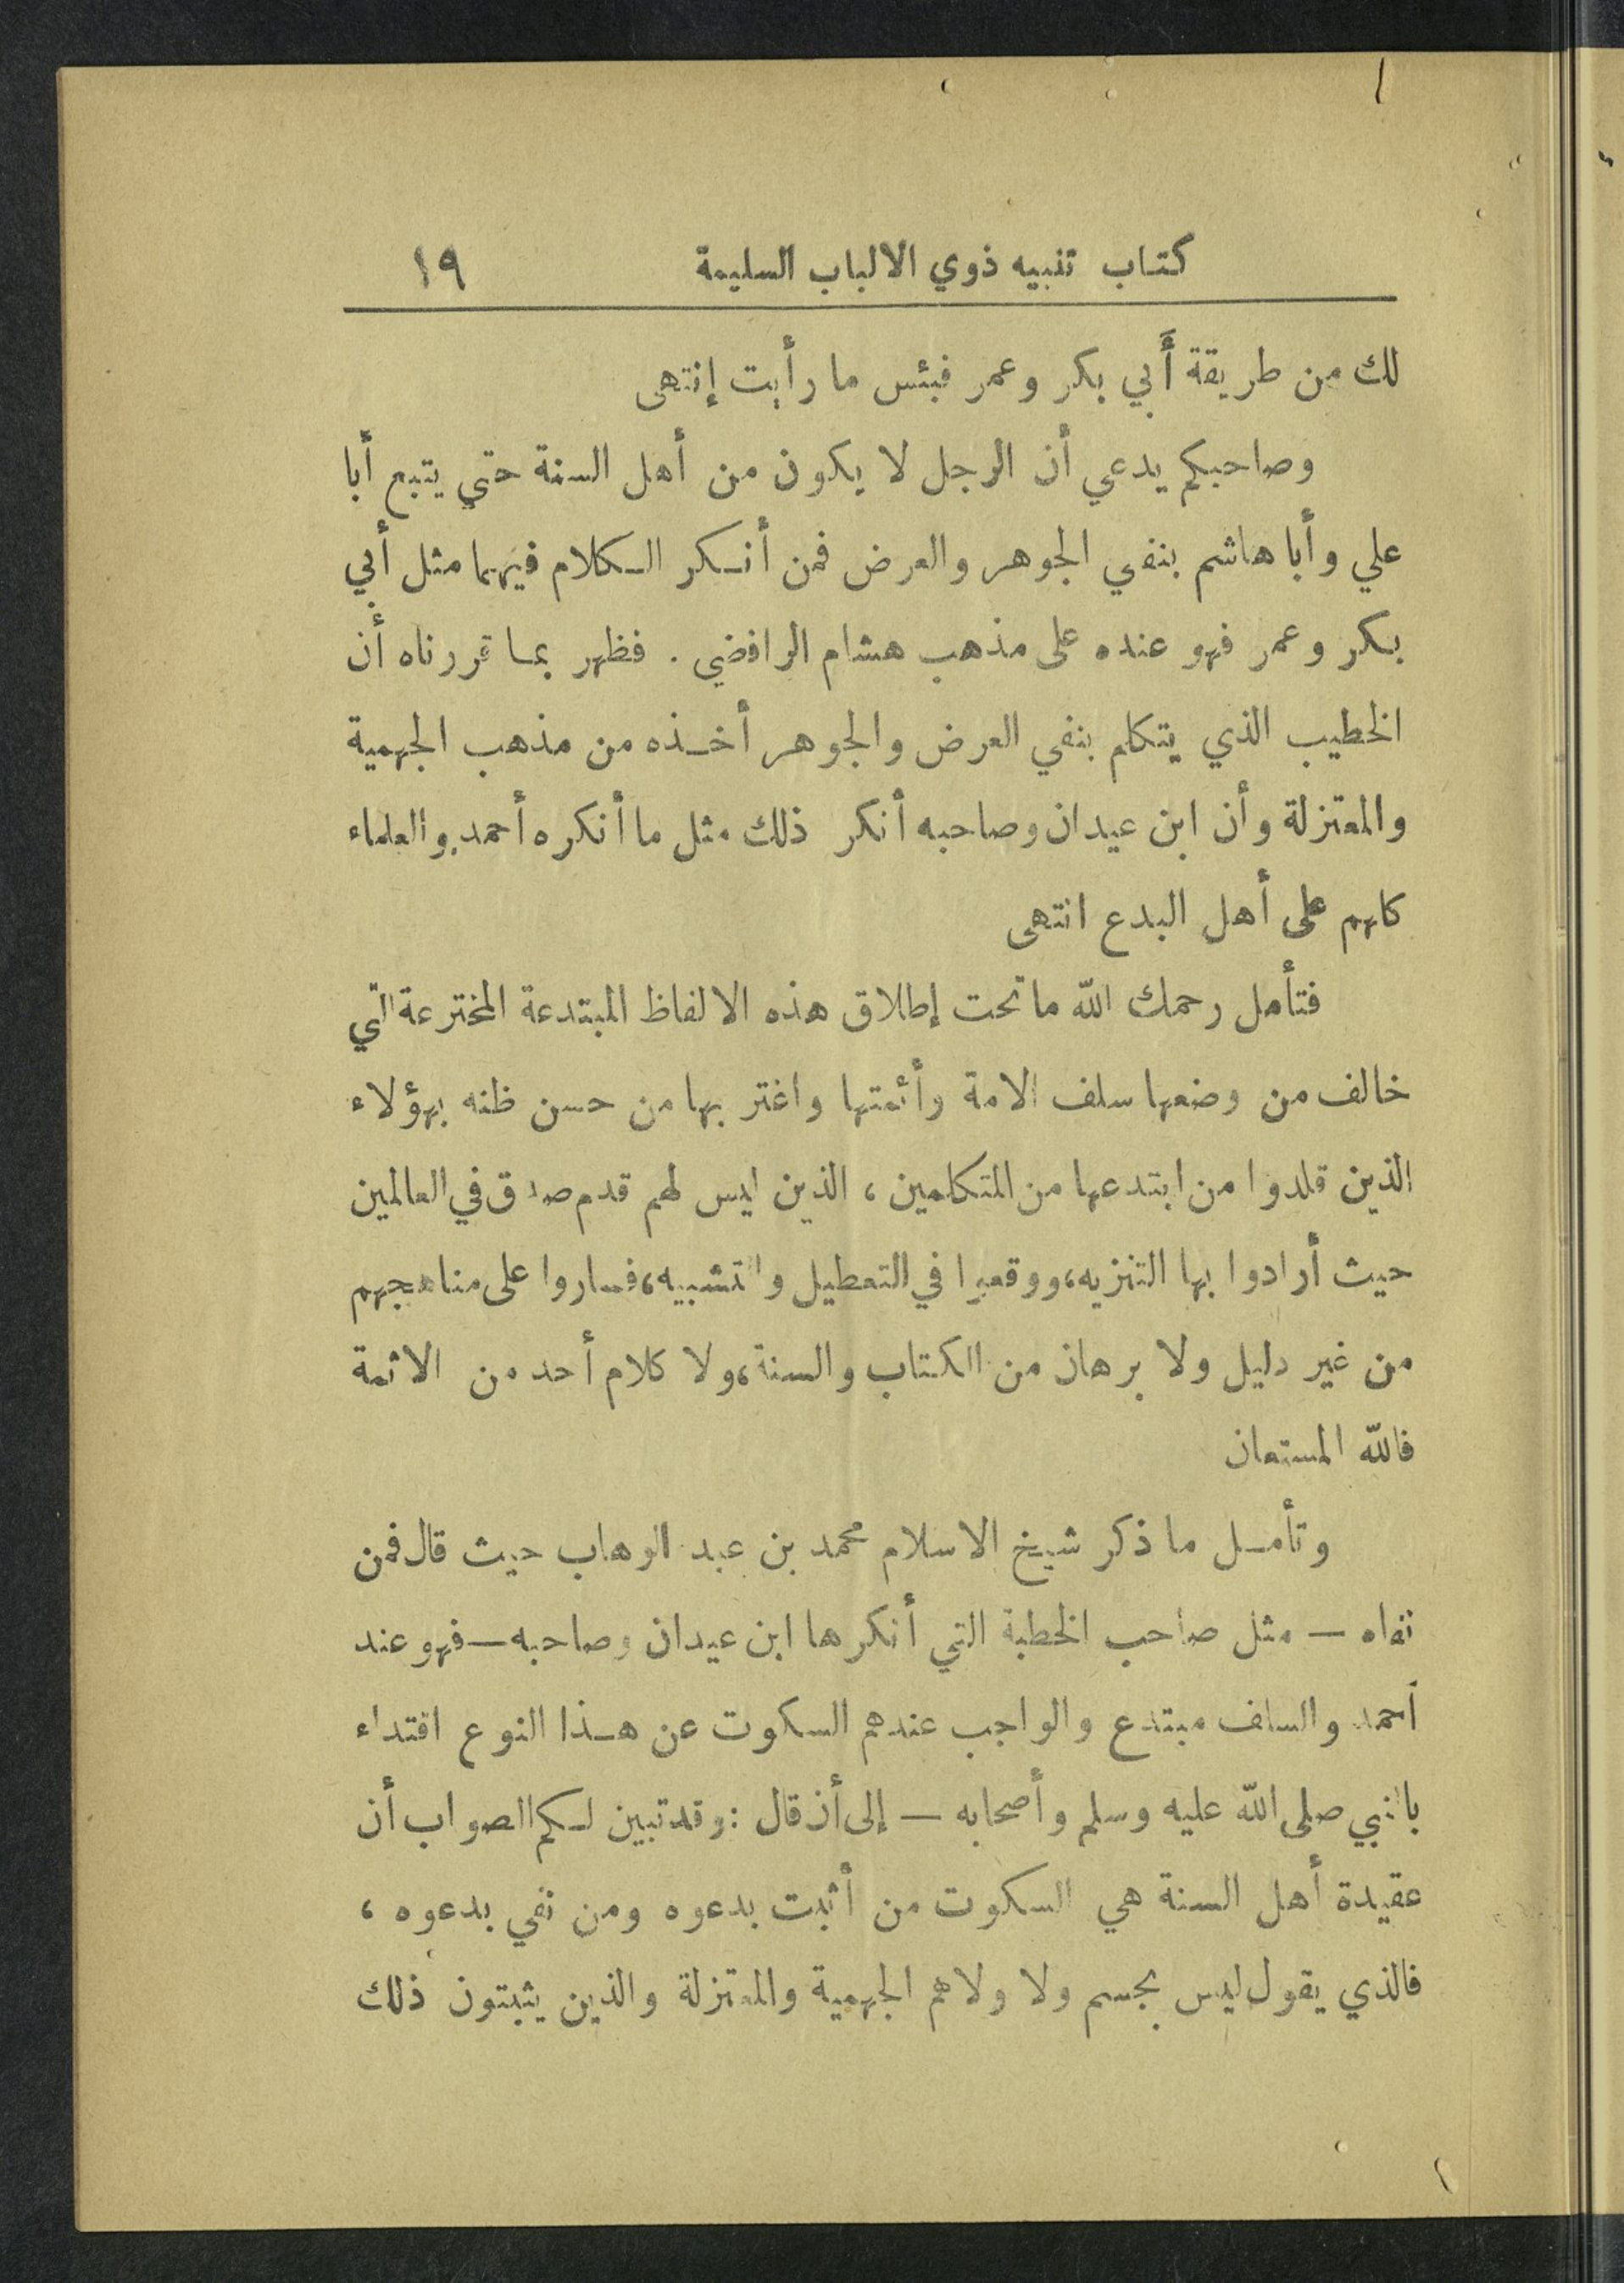 كتاب تنبيه ذوي الالباب السليمة ١٩
لك من طريقة أبي بكر وعمر فبئس ما رأيت إنتهى
وصاحبكم يدعي أن الرجل لا يكون من أهل السنة حتى يتبع أبا
علي وأبا هاشم بنفي الجوهر والعرض فمن أنكر الكلام فيهما مثل أبي
بكر وعمر فهو عنده على مذهب هشام الرافضي . فظهر بما قررناه أن
الخطيب الذي يتكلم بنفي العرض والجوهر أخذه من مذهب الجهمية
والمعتزلة وأن ابن عيدان وصاحبه أنكر ذلك مثل ما أنكره أحمد والعلماء
كلهم على أهل البدع انتهى
فتأمل رحمك الله ما تحت إطلاق هذه الالفاظ المبتدعة المخترعة التي
خالف من وضعها سلف الامة وأئمتها واغتر بها من حسن ظنه بهؤلاء
الذين قلدوا من ابتدعها من المتكلمين ، الذين ليس لهم قدم صدق في العالمين
حيث أرادوا بها التنزيه، ووقعوا في التعطيل والتشبيه، فساروا على مناهجهم
من غير دليل ولا برهان من الكتاب والسنة، ولا كلام أحد من الائمة
فالله المستعان
وتأمل ما ذكر شيخ الاسلام محمد بن عبد الوهاب حيث قال فمن
نفاه — مثل صاحب الخطبة التي أنكرها ابن عيدان وصاحبه — فهو عند
أحمد والسلف مبتدع والواجب عندهم السكوت عن هذا النوع اقتداء
بالنبي صلى الله عليه وسلم وأصحابه — إلى أن قال : وقد تبين لكم الصواب أن
عقيدة أهل السنة هي السكوت من أثبت بدعوه ومن نفي بدعوه ،
فالذي يقول ليس بجسم ولا ولا هم الجهمية والمعتزلة والذين يثبتون ذلك